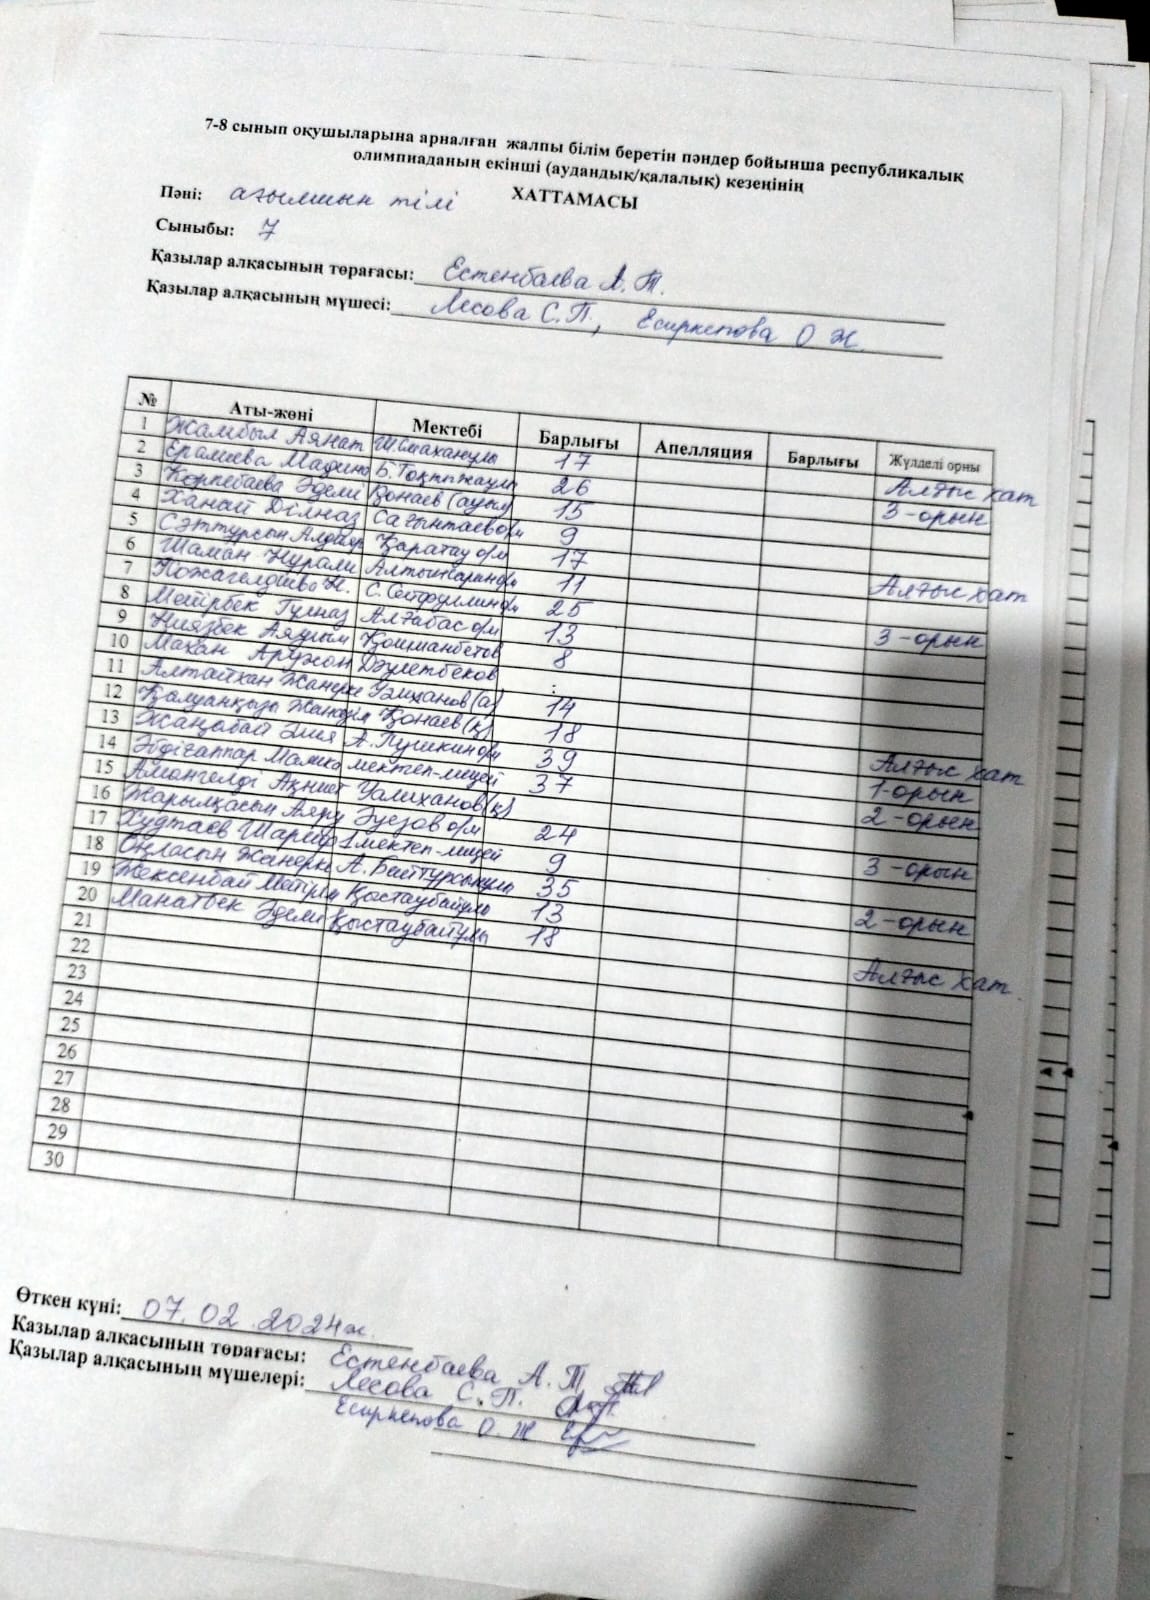 7-8 сынып оқушыларына арналған жалпы білім беретін пәндер бойынша республикалық
олимпиаданың екінші (аудандық/қалалық) кезеңінің
ХАТТАМАСЫ
Пәні: ағылшын тілі
Сыныбы: 7
Қазылар алқасының төрағасы: Естенбаева А.Т.
Қазылар алқасының мүшесі: Лесова С.П., Есиркепова О Ж.
№ Аты-жөні Мектебі Барлығы Апелляция Барлығы Жүлделі орны
1 Жамбыл Аянат Ш.Смаханұлы 17 Алғыс хат
2 Ерамиева Мадина Б. 26 3-орын
3 Көрпебаева Әдемі Қонаев (ауыл) 15
4 Ханай Ділназ Сағынтаев о/м 9
5 Сәттұрсын Алдияр Қаратау о/м 17 Алғыс хат
6 Шаман Нұрали Алтынсарин о/м 11
7 Қожагелдиева Н. С. Сейфуллин о/м 25 3-орын
8 Мейірбек Гүлназ Алғабас о/м 13
9 Ниязбек Аяулым Қошманбетов 8
10 Махан Аружан Дәулетбеков :
11 Алтайхан Жанерке Уәлиханов (а) 14
12 Қалуанқызы Қонаев (қ) 18 Алғыс хат
13 Жаңабай Әлия А. Пушкин о/м 39 1-орын
14 Әбдіғаппар Малика мектеп-лицей 37 2-орын
15 Амангелді Ақниет Уалиханов (қ)
16 Жарылқасын Аяру Әуезов о/м 24 3-орын
17 Худтаев Шариар 1 мектеп-лицей 9
18 Оңласын Жанерке А. Байтұрсынұлы 35 2-орын
19 Жексенбай Мейірім Қыстаубайұлы 13
20 Манатбек Әдемі Қыстаубайұлы 18 Алғыс хат.
21
22
23
24
25
26
27
28
29
30
Өткен күні: 07.02.2024ж.
Қазылар алқасының төрағасы: Естенбаева А.Т.
Қазылар алқасының мүшелері: Лесова С.П.
Есиркепова О.Ж